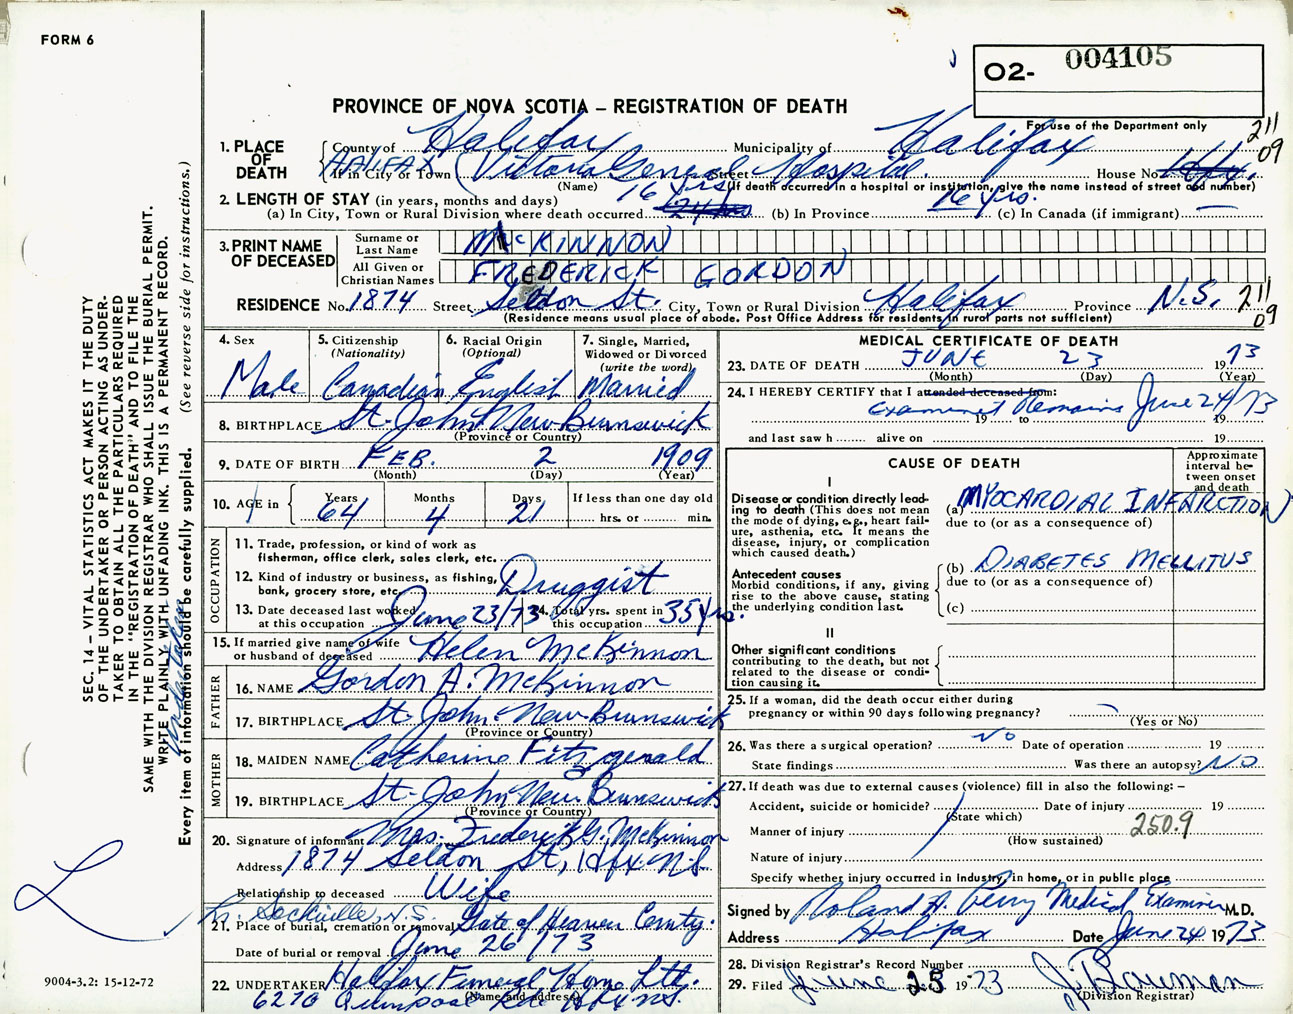 FORM 6
O2- 004105
PROVINCE OF NOVA SCOTIA – REGISTRATION OF DEATH
For use of the Department only
211
09
1. PLACE OF DEATH
County of Halifax Municipality of Halifax
HALIFAX
If in City or Town (Victoria General Street Hospital. House No.
(Name) (If death occurred in a hospital or institution, give the name instead of street and number)
2. LENGTH OF STAY (in years, months and days) 16 yrs.
(a) In City, Town or Rural Division where death occurred (b) In Province 16 yrs. (c) In Canada (if immigrant) —
3. PRINT NAME OF DECEASED
Surname or Last Name McKINNON
All Given or Christian Names FREDERICK GORDON
RESIDENCE No. 1874 Street Seldon St. City, Town or Rural Division Halifax Province N.S. 211
09
(Residence means usual place of abode. Post Office Address for residents in rural parts not sufficient)
4. Sex
Male
5. Citizenship (Nationality)
Canadian
6. Racial Origin (Optional)
English
7. Single, Married, Widowed or Divorced (write the word)
Married
8. BIRTHPLACE St. John New Brunswick
(Province or Country)
9. DATE OF BIRTH FEB. 2 1909
(Month) (Day) (Year)
10. AGE in { Years 64 Months 4 Days 21 If less than one day old
hrs. or min.
OCCUPATION
11. Trade, profession, or kind of work as fisherman, office clerk, sales clerk, etc.
12. Kind of industry or business, as fishing, bank, grocery store, etc. Druggist
13. Date deceased last worked at this occupation June 23/73 14. Total yrs. spent in this occupation 35 yrs.
15. If married give name of wife or husband of deceased Helen McKinnon
FATHER
16. NAME Gordon A. McKinnon
17. BIRTHPLACE St. John New Brunswick
(Province or Country)
MOTHER
18. MAIDEN NAME Catherine Fitzgerald
19. BIRTHPLACE St. John New Brunswick
(Province or Country)
20. Signature of informant Mrs. Frederick G. McKinnon
Address 1874 Seldon St, Hfx N.S.
Relationship to deceased Wife
Sackville, N.S.
21. Place of burial, cremation or removal Gate of Heaven Cemty.
Date of burial or removal June 26/73
22. UNDERTAKER Halifax Funeral Home Ltd.
(Name and address)
6270 Quinpool Rd. Hfx N.S.
MEDICAL CERTIFICATE OF DEATH
23. DATE OF DEATH JUNE 23 1973
(Month) (Day) (Year)
24. I HEREBY CERTIFY that I attended deceased from:
Examined Remains June 24/73
19 to 19
and last saw h alive on 19
CAUSE OF DEATH
Approximate interval between onset and death
I
Disease or condition directly leading to death (This does not mean the mode of dying, e.g., heart failure, asthenia, etc. It means the disease, injury, or complication which caused death.)
(a) MYOCARDIAL INFARCTION
due to (or as a consequence of)
Antecedent causes
Morbid conditions, if any, giving rise to the above cause, stating the underlying condition last.
(b) DIABETES MELLITUS
due to (or as a consequence of)
(c)
II
Other significant conditions
contributing to the death, but not related to the disease or condition causing it.
25. If a woman, did the death occur either during pregnancy or within 90 days following pregnancy?
(Yes or No)
26. Was there a surgical operation? No Date of operation 19
State findings Was there an autopsy? No
27. If death was due to external causes (violence) fill in also the following: –
Accident, suicide or homicide? Date of injury 19
(State which)
Manner of injury 250.9
(How sustained)
Nature of injury
Specify whether injury occurred in Industry, in home, or in public place
Signed by Roland H. Perry Medical Examiner M.D.
Address Halifax Date June 24 1973
28. Division Registrar's Record Number
29. Filed June 25 1973
(Division Registrar)
SEC. 14 – VITAL STATISTICS ACT MAKES IT THE DUTY
OF THE UNDERTAKER OR PERSON ACTING AS UNDER-
TAKER TO OBTAIN ALL THE PARTICULARS REQUIRED
IN THE "REGISTRATION OF DEATH" AND TO FILE THE
SAME WITH THE DIVISION REGISTRAR WHO SHALL ISSUE THE BURIAL PERMIT.
WRITE PLAINLY WITH UNFADING INK. THIS IS A PERMANENT RECORD.
Every item of information should be carefully supplied. (See reverse side for instructions.)
9004-3.2: 15-12-72